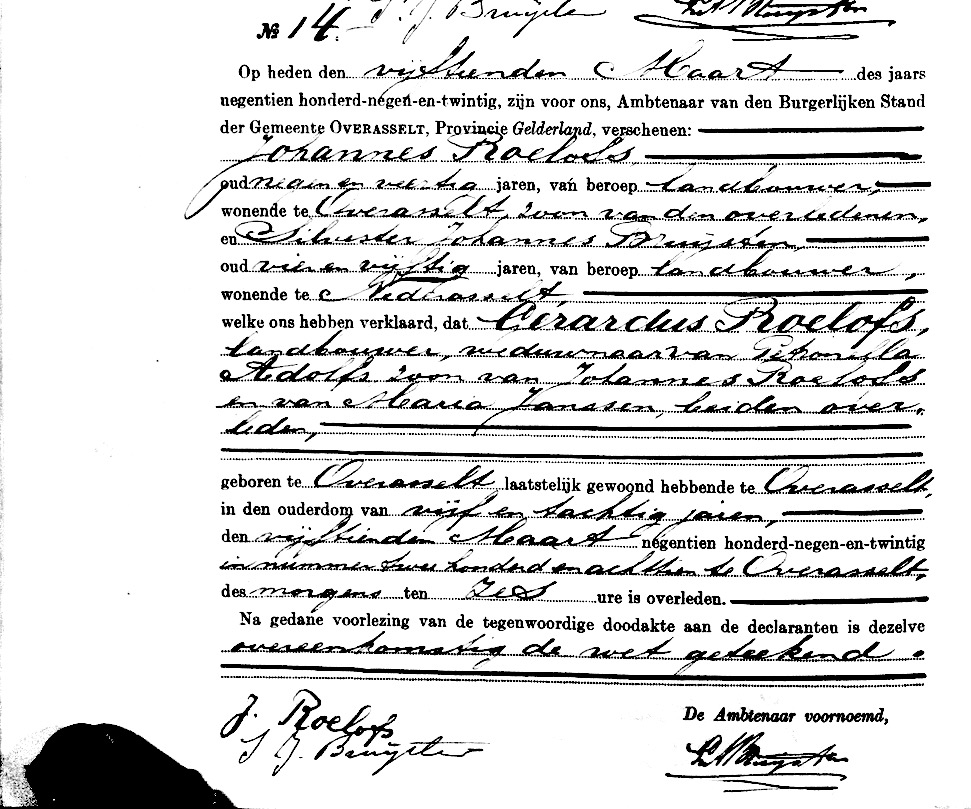 S. J. Bruysten
№ 14.
Op heden den vijftienden Maart des jaars
negentien honderd-negen-en-twintig, zijn voor ons, Ambtenaar van den Burgerlijken Stand
der Gemeente OVERASSELT, Provincie Gelderland, verschenen:
Johannes Roelofs
oud negen en veertig jaren, van beroep landbouwer,
wonende te Overasselt, zoon van den overledenen,
en Silvester Johannes Bruijsten,
oud vier en vijftig jaren, van beroep landbouwer,
wonende te Nederasselt
welke ons hebben verklaard, dat Gerardus Roelofs,
landbouwer, weduwnaar van Petronella
Adolfs zoon van Johannes Roelofs
en van Maria Janssen, beiden over-
leden,
geboren te Overasselt laatstelijk gewoond hebbende te Overasselt,
in den ouderdom van vijf en tachtig jaren,
den vijftienden Maart negentien honderd-negen-en-twintig
in nummer twee honderd en achttien te Overasselt,
des morgens ten zes ure is overleden.
Na gedane voorlezing van de tegenwoordige doodakte aan de declaranten is dezelve
overeenkomstig de wet geteekend.
J. Roelofs
S J. Bruysten
De Ambtenaar voornoemd,